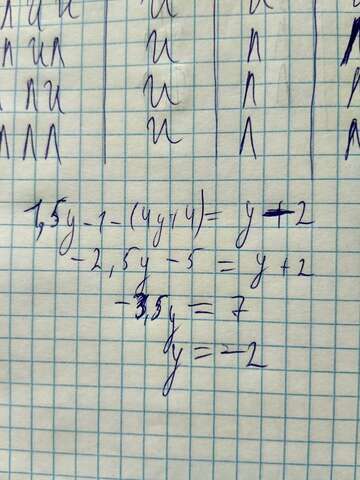 л и и и
л и л и л
л и и л
л л л и л
1,5y - 1 - (4y+4) = y + 2
-2,5y - 5 = y + 2
-3,5y = 7
y = -2